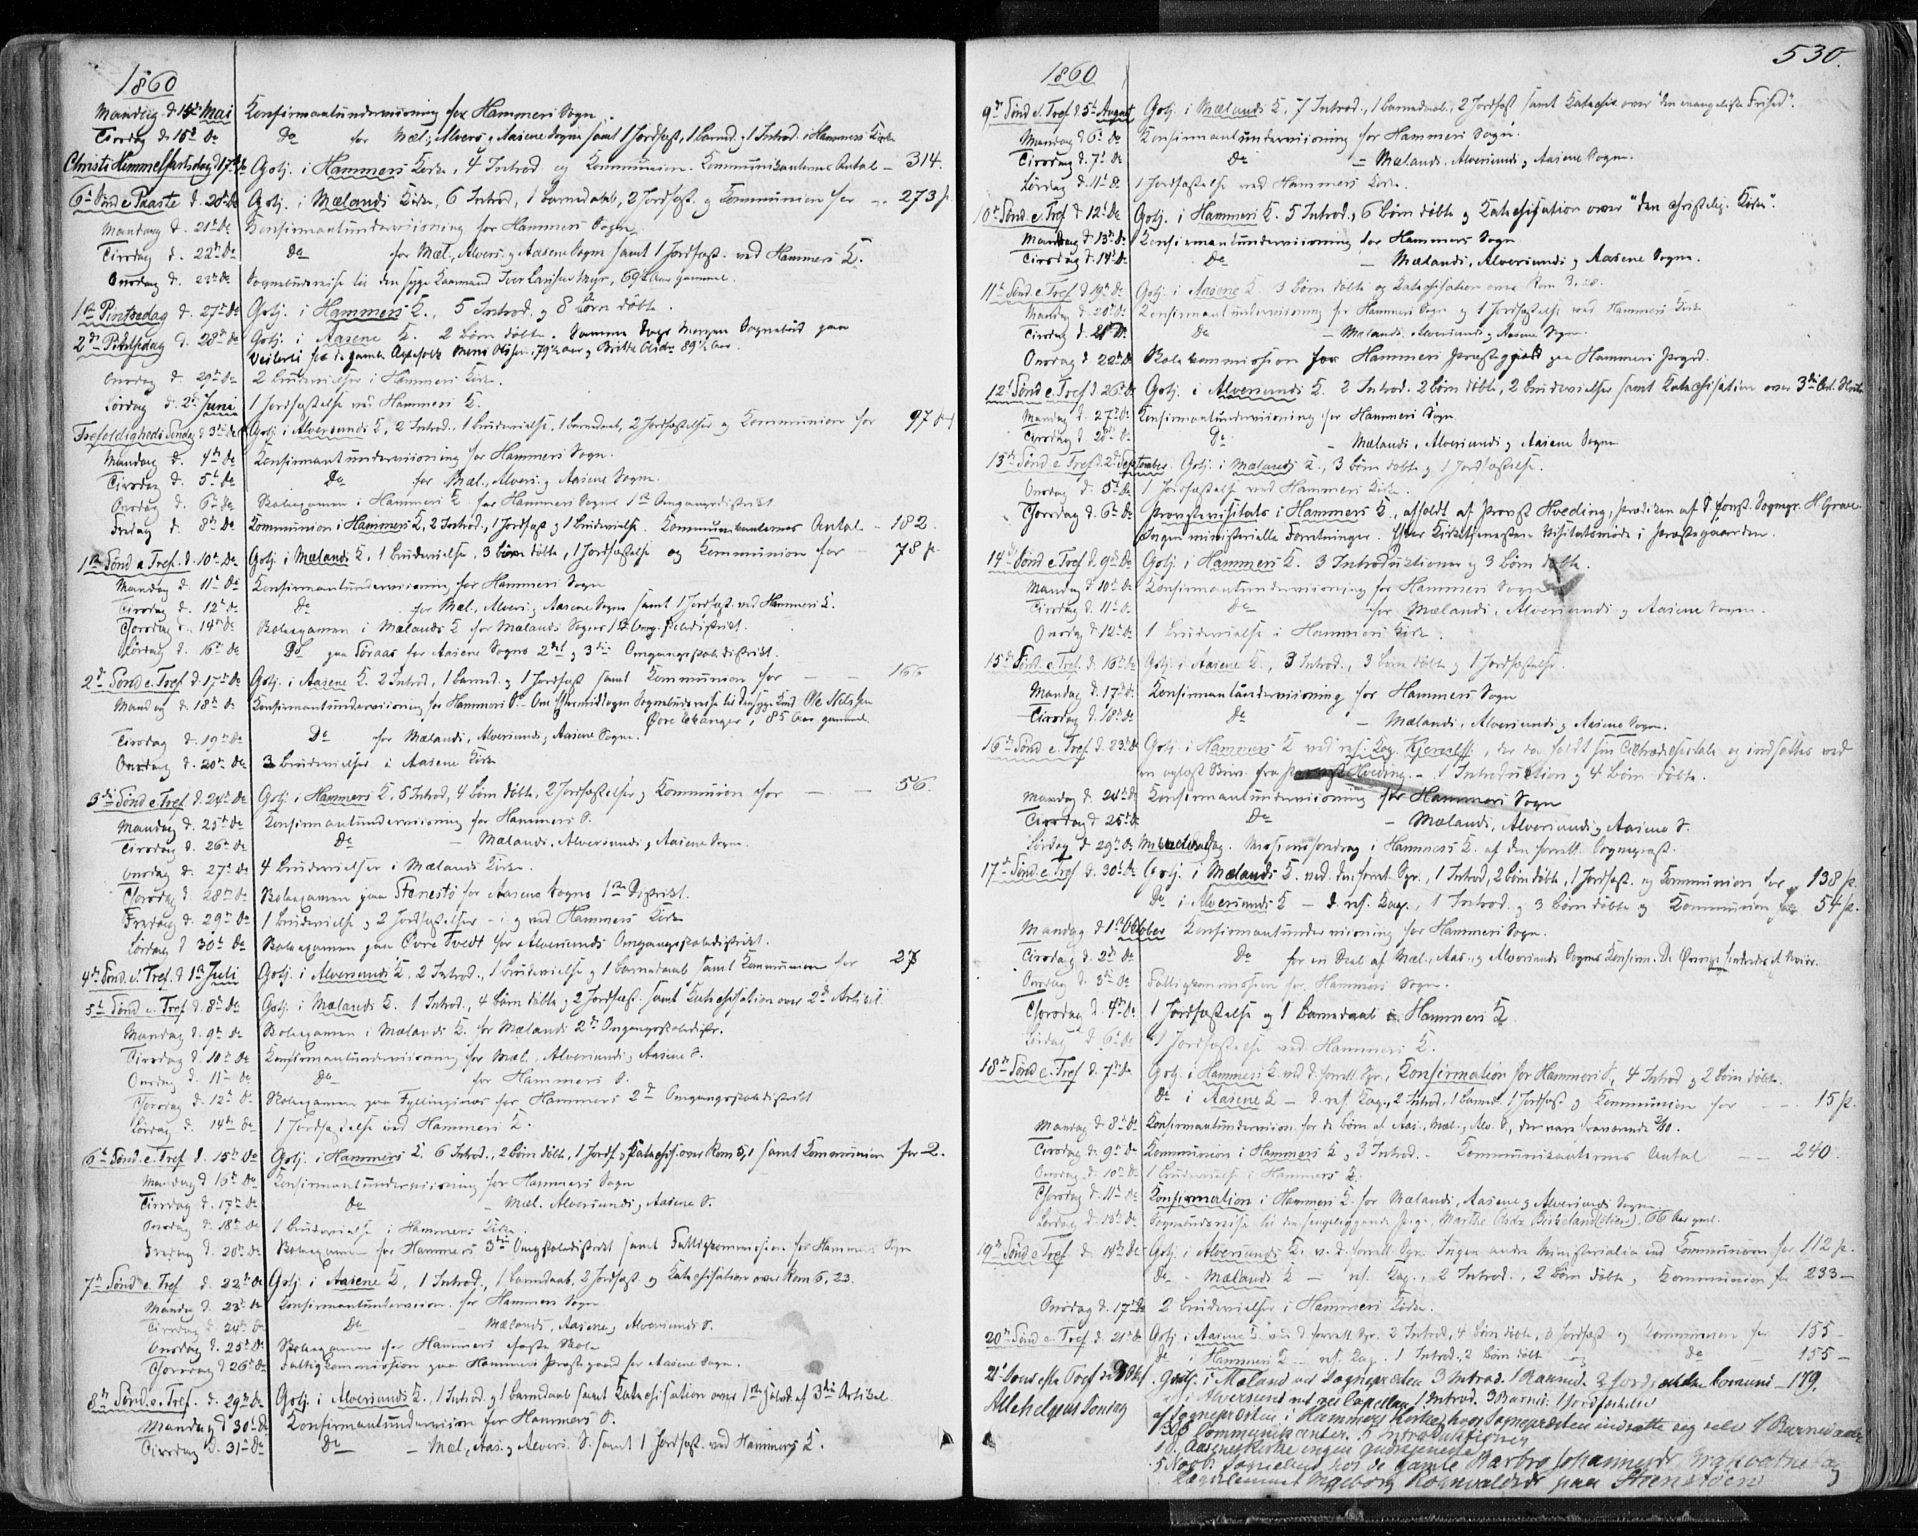 1860
Mandag d. 14de Mai Konfirmantunderviisning for Hammers Sogn.
Tirsdag d. 15de Do Do for Mæl., Alvers. og Aasene Sogne samt 1 Jordfæst., 1 Barned., 1 Introd. i Hammers Kirke
Christi Himmelfartsdag d. 17de Do Gstj. i Hammers Kirke, 4 Introd. og Kommunion. Kommunikanternes Antal - 314.
6te Sønd. e. Paaske d. 20de Do Gstj. i Mælands Kirke, 6 Introd., 1 Barnedaab, 2 Jordfæst. og Kommunion for - 273 p.
Mandag d. 21de Do Konfirmantunderviisning for Hammers Sogn.
Tirsdag d. 22de Do Do for Mæl., Alvers. og Aasene Sogne samt 1 Jordfæst. ved Hammers K.
Onsdag d. 23de Do Sognebudsreise til den syge Kaarmand Iver Larssen Myr, 69 1/2 Aar gammel.
1ste Pintsedag d. 27de Do Gstj. i Hammers K., 5 Introd. og 8 Børn døbte.
2den Pintsedag d. 28de Do Gstj. i Aasene K. 2 Børn døbte. Samme Dags Morgen Sognebud paa
Onsdag d. 29de Do 2 Brudevielser i Hammers Kirke.
Lørdag d. 2den Juni 1 Jordfæstelse ved Hammers K.
Trefoldigheds Søndag d. 3die Do Gstj. i Alversunds K., 2 Introd., 1 Brudevielse, 1 Barnedaab, 2 Jordfæstelser og Kommunion for 97
Mandag d. 4de Do Konfirmantunderviisning for Hammers Sogn.
Tirsdag d. 5te Do Do for Mæl., Alvers. og Aasene Sogne.
Onsdag d. 6te Do Skoleexamen i Hammers K. for Hammers Sogns 1ste Omgangsdistrikt
Fredag d. 8de Do Kommunion i Hammers K., 2 Introd., 1 Jordfæst. og 1 Brudevielse. Kommunikanternes Antal - 182.
1ste Sønd. e. Tref. d. 10de Do Gstj. i Mælands K., 1 Brudevielse, 3 Børn døbte, 1 Jordfæstelse og Kommunion for - 78 p.
Mandag d. 11te Do Konfirmantunderviisning for Hammers Sogn
Tirsdag d. 12te Do Do for Mæl., Alvers. og Aasene Sogne samt 1 Jordfæst. ved Hammers K.
Torsdag d. 14de Do Skoleexamen i Mælands K. for Mælands Sogns 1ste Omg. Skoledistrikt.
Lørdag d. 16de Do Do paa Soraas for Aasene Sogns 2det og 3die Omgangsskoledistrikt.
2den Sønd. e. Tref. d. 17de Do Gstj. i Aasene K. 2 Introd., 1 Barned. og 1 Jordfæst. samt Kommunion for - 166
Mandag d. 18de Do Konfirmantunderviisning for Hammers S. Om Eftermiddagen Sognebudsreise til den syge Ole Nelssen
Øvre Echanger, 85 Aar gammel.
Tirsdag d. 19de Do Do for Mælands, Alversunds og Aasene Sogne.
Onsdag d. 20de Do 3 Brudevielser i Aasene Kirke
3die Sønd. e. Tref. d. 24de Do Gstj. i Hammers K., 5 Introd., 4 Børn døbte, 2 Jordfæstelser og Kommunion for - 56.
Mandag d. 25de Do Konfirmantunderviisning for Hammers S.
Tirsdag d. 26de Do Do - Mælands, Alversunds og Aasene Sogne.
Onsdag d. 27de Do 4 Brudevielser i Mælands Kirke.
Torsdag d. 28de Do Skoleexamen paa Fæstestø for Aasene Sogns 1ste Distrikt.
Fredag d. 29de Do 1 Brudevielse og 2 Jordfæstelser - i og ved Hammers Kirke
Lørdag d. 30te Do Skoleexamen paa Øvre Tvedt for Alversunds Omgangsskoledistrikt.
4de Sønd. e. Tref. d. 1ste Juli Gstj. i Alversunds K., 2 Introd., 1 Brudevielse og 1 Barnedaab samt Kommunion for 27
5te Sønd. e. Tref. d. 8de Do Gstj. i Mælands K. 1 Introd., 4 Børn døbte, 2 Jordfæst. samt Katechisation over 2den Artikel
Mandag d. 9de Do Skoleexamen i Mælands K. for Mælands 2det Omgangsskoledistr.
Tirsdag d. 10de Do Konfirmantunderviisning for Mæl., Alversunds og Aasene S.
Onsdag d. 11te Do Do for Hammers S.
Torsdag d. 12te Do Skoleexamen paa Fyllingsnæs for Hammers 2det Omgangsskoledistrikt
Lørdag d. 14de Do 1 Jordfæstelse ved Hammers K.
6te Sønd. e. Tref. d. 15de Do Gstj. i Hammers K. 6 Introd., 2 Børn døbte, 1 Jordf. og Katechis. over Rom 5,1 samt Kommunion for 2.
Mandag d. 16de Do Konfirmantunderviisning for Hammers Sogn
Tirsdag d. 17de Do Do - Mæl. Alversunds og Aasene S.
Onsdag d. 18de Do 1 Brudevielse i Hammers Kirke.
Fredag d. 20de Do Skoleexamen for Hammers 3die Omg.skoledistrikt samt Fattigkommission for Hammers Sogn
7de Sønd. e. Tref. d. 22de Do Gstj. i Aasene K., 1 Introd., 1 Barnedaab, 2 Jordfæst. og Katechisation over Rom 6, 23.
Mandag d. 23de Do Konfirmantundervisn. for Hammers Sogn.
Tirsdag d. 24de Do Do - Mælands, Aasene og Alversunds S.
Onsdag d. 25de Do Skoleexamen for Hammers faste Skole
Torsdag d. 26de Do Fattigkommission paa Hammers Præstegaard for Aasene Sogn.
8de Sønd. e. Tref. d. 29de Do Gstj. i Alversunds K., 1 Introd. og 1 Barnedaab samt Katechisation over 1ste Halvd. af 3die Artikel
Mandag d. 30te Do Konfirmantundervisn. for Hammers S.
Tirsdag d. 31te Do Do - Mæl., Aas. og Alvers. S. samt 1 Jordfæst. ved Hammers K.
530.
1860
9de Sønd. e. Tref. d. 5te August Gstj. i Mælands K., 7 Introd., 1 Barnedaab, 2 Jordfæst. samt Katechis. over "den evangeliske Frihed".
Mandag d. 6te Do Konfirmantunderviisning for Hammers Sogn.
Tirsdag d. 7de Do Do - Mælands, Alversunds og Aasene Sogne.
Lørdag d. 11te Do 1 Jordfæstelse ved Hammers Kirke.
10de Sønd. e. Tref. d. 12te Do Gstj. i Hammers K. 5 Introd., 6 Børn døbte og Katechisation over "den christelige Kirke".
Mandag d. 13de Do Konfirmantunderviisning for Hammers Sogn
Tirsdag d. 14de Do Do - Mælands, Alversunds og Aasene Sogne.
11te Sønd. e. Tref. d. 19de Do Gstj. i Aasene K. 3 Børn døbte og Katechisation over Rom 3,
Mandag d. 20de Do Konfirmantunderviisning for Hammers Sogn og 1 Jordfæstelse ved Hammers Kirke
Tirsdag d. 21de Do Do - Mælands, Alversunds og Aasene Sogne.
Onsdag d. 22de Do Skolekommission for Hammers Præstegjeld paa Hammers Prgrd.
12te Sønd. e. Tref. d. 26de Do Gstj. i Alversunds K. 2 Introd. 2 Børn døbte, 2 Brudevielser samt Katechisation over 3die Art.
Mandag d. 27de Do Konfirmantunderviisning for Hammers Sogn
Tirsdag d. 28de Do Do - Mælands, Alversunds og Aasene Sogne
13de Sønd. e. Tref. d. 2den September Gstj. i Mælands K., 3 Børn døbte og 1 Jordfæstelse.
Onsdag d. 5te Do 1 Jordfæstelse ved Hammers Kirke.
Torsdag d. 6te Do Provstevisitats i Hammers K., afholdt af Provst Hveding, Prædiken af d. Sognepr. H.
Ingen ministerielle Forretninger. Efter Kirketjenesten Visitatsmøde i Præstegaarden.
14de Sønd. e. Tref. d. 9de Do Gstj. i Hammers K. 3 Introduktioner og 3 Børn døbte.
Mandag d. 10de Do Konfirmantunderviisning for Hammers Sogn
Tirsdag d. 11te Do Do for Mælands, Alversunds og Aasene Sogne.
Onsdag d. 12te Do 1 Brudevielse i Hammers Kirke.
15de Sønd. e. Tref. d. 16de Do Gstj. i Aasene K., 3 Introd., 3 Børn døbte og 1 Jordfæstelse.
Mandag d. 17de Do Konfirmantunderviisning for Hammers Sogn
Tirsdag d. 18de Do Do - Mælands, Alversunds og Aasene Sogne.
16de Sønd. e. Tref. d. 23de Do Gstj. i Hammers K. ved res. Kap. , der da holdt sin Tiltrædelsestale og indsattes ved
en oplæst Skriv. fra Provst Hveding. - 1 Introduktion og 4 Børn døbte.
Mandag d. 24de Do Konfirmantunderviisning for Hammers Sogn
Tirsdag d. 25de Do Do - Mælands, Alversunds og Aasene S.
Lørdag d. 29de Do Michaelsdag. Missionsforedrag i Hammers K. af den forrett. Sognepræst.
17de Sønd. e. Tref. d. 30te Do Gstj. i Mælands K. ved den forrett. Spr., 1 Introd., 2 Børn døbte, 1 Jordfæst. og Kommunion for 138 p.
Do i Alversunds K - d. res. Kap., 1 Introd. og 3 Børn døbte og Kommunion for 54 p.
Mandag d. 1ste October Konfirmantunderviisning for Hammers Sogn.
Tirsdag d. 2den Do Do for en Deel af Mæl., Aas. og Alversunds Sognes Konfirm. De Øvrige hindredes af Veir.
Onsdag d. 3die Do Fattigkommission for Hammers Sogn.
Torsdag d. 4de Do 1 Jordfæstelse og 1 Barnedaab i Hammers K.
Lørdag d. 6te Do 1 Jordfæstelse ved Hammers K.
18de Sønd. e. Tref. d. 7de Do Gstj. i Hammers K. ved d. forrett. Spr., Konfirmation for Hammers S., 4 Introd. og 2 Børn døbte.
Do i Aasene K - d. res. Kap., 2 Introd., 1 Barned., 1 Jordfæst. og Kommunion for - 15 p.
Mandag d. 8de Do Konfirmantundervisn. for de Børn af Aas., Mæl. og Alv. S., der vare fraværende 2/10.
Tirsdag d. 9de Do Kommunion i Hammers K. og 3 Introd. - Kommunikanternes Antal - 240.
Onsdag d. 10de Do 1 Brudevielse i Hammers K.
Torsdag d. 11te Do Konfirmation i Hammers K. for Mælands, Aasene og Alversunds Sogne
Lørdag d. 13de Do Sognebudsreise til den sengeliggende Pige, Marthe Olsdr. Birkeland, 66 Aar gml.
19de Sønd. e. Tref. d. 14de Do Gstj. i Alversunds K. v. d. forrett. Spr. Ingen andre Ministerialia end Kommunion for 112 p.
Do - Mælands K - res. Kap., 2 Introd., 2 Børn døbte, Kommunion for 233 -
Onsdag d. 17de Do 2 Brudevielser i Hammers Kirke.
20de Sønd. e. Tref. d. 21de Do Gstj. i Aasene K. ved d. forrett. Spr. 2 Introd., 4 Børn døbte, 3 Jordfæst. og Kommunion for 155 -
Do i Hammers K - res. Kap. 1 Introd., 2 Børn døbt og Do 155 -
21de Sønd. efter Tref. d. 28 Oktbr. Gudst. i Mæland ved Sognepræsten 3 Introd. 1 Barned. 2 Jordf. 179.
i Alversund ved res. Capellan, 1 Introd. 3 Barned. 1 Jordfæstelse
Allehelgens Søndag af Sognepræsten i Hammers Kirke, hvor Sognepræsten indsatte sig selv, 4 Barnedaab
Communicanter. 5 Introduktioner
I Aasene Kirke ingen Gudstjeneste
5 Novbr. Sognebud hos de gamle Barbro Johannesdr. og
Ingeborg Rognvaldsdr. paa Steenstøen